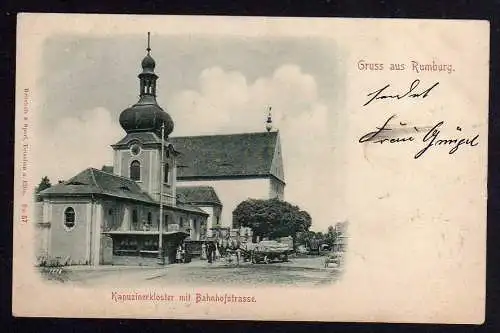 Gruss aus Rumburg.
sendet
Frau
Kapuzinerkloster mit Bahnhofstrasse.